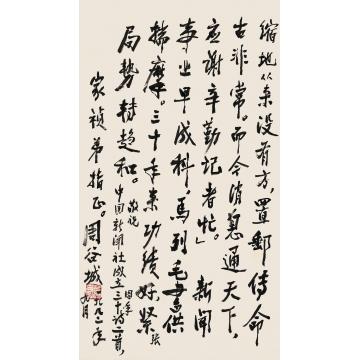 缩地从来没有方，置邮传命
古非常。而今消息通天下，
应谢辛勤记者忙。」新闻
事业早成科，马列毛书供
揣摩。三十年来功绩好，紧张
局势转趋和。敬祝
中国新闻社成立三十周年诗二首，
家祯弟指正。周谷城 一九八二年
九月